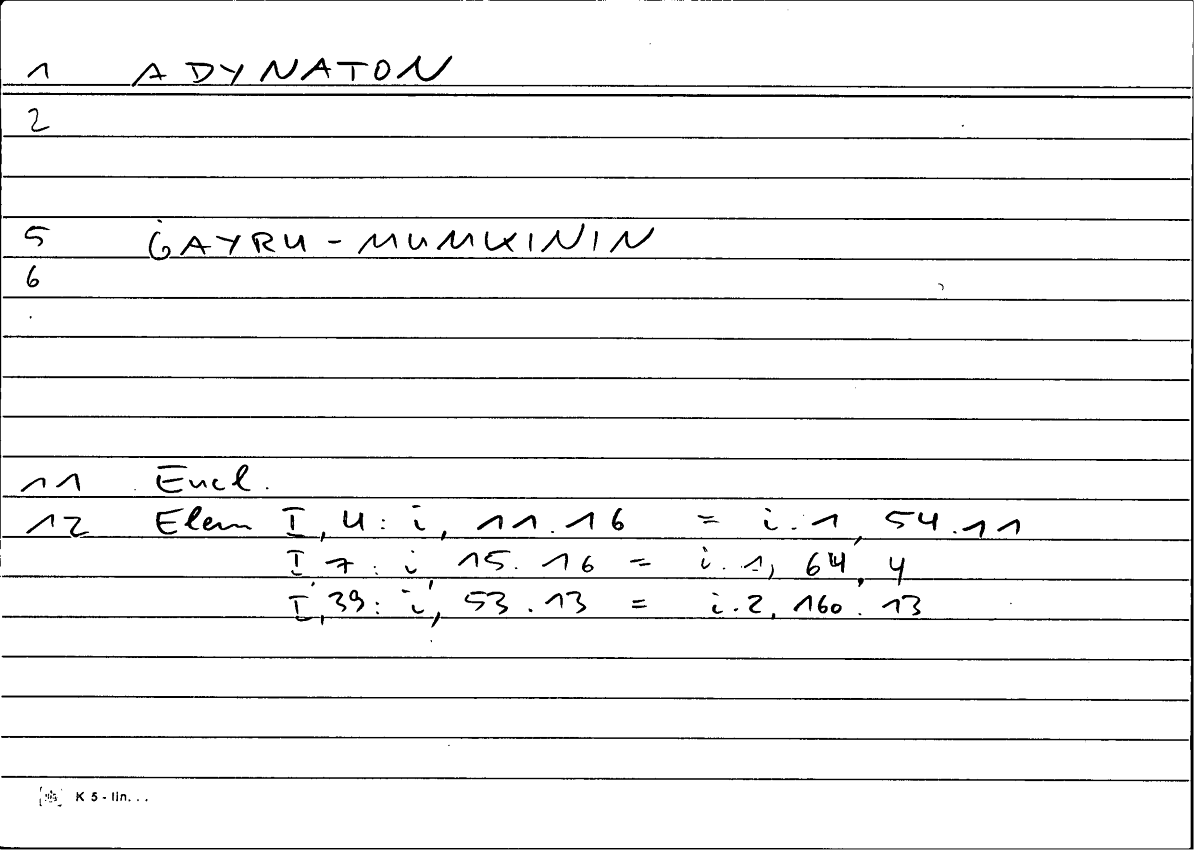 1 ADYNATON
2
5 ĠAYRU-MUMKININ
6
11 Eucl.
12 Elem I, 4: i, 11.16 = i.1, 54.11
I, 7: i, 15.16 = i.1, 64,4
I, 39: i, 53.13 = i.2, 160.13
K 5 - lin. . .